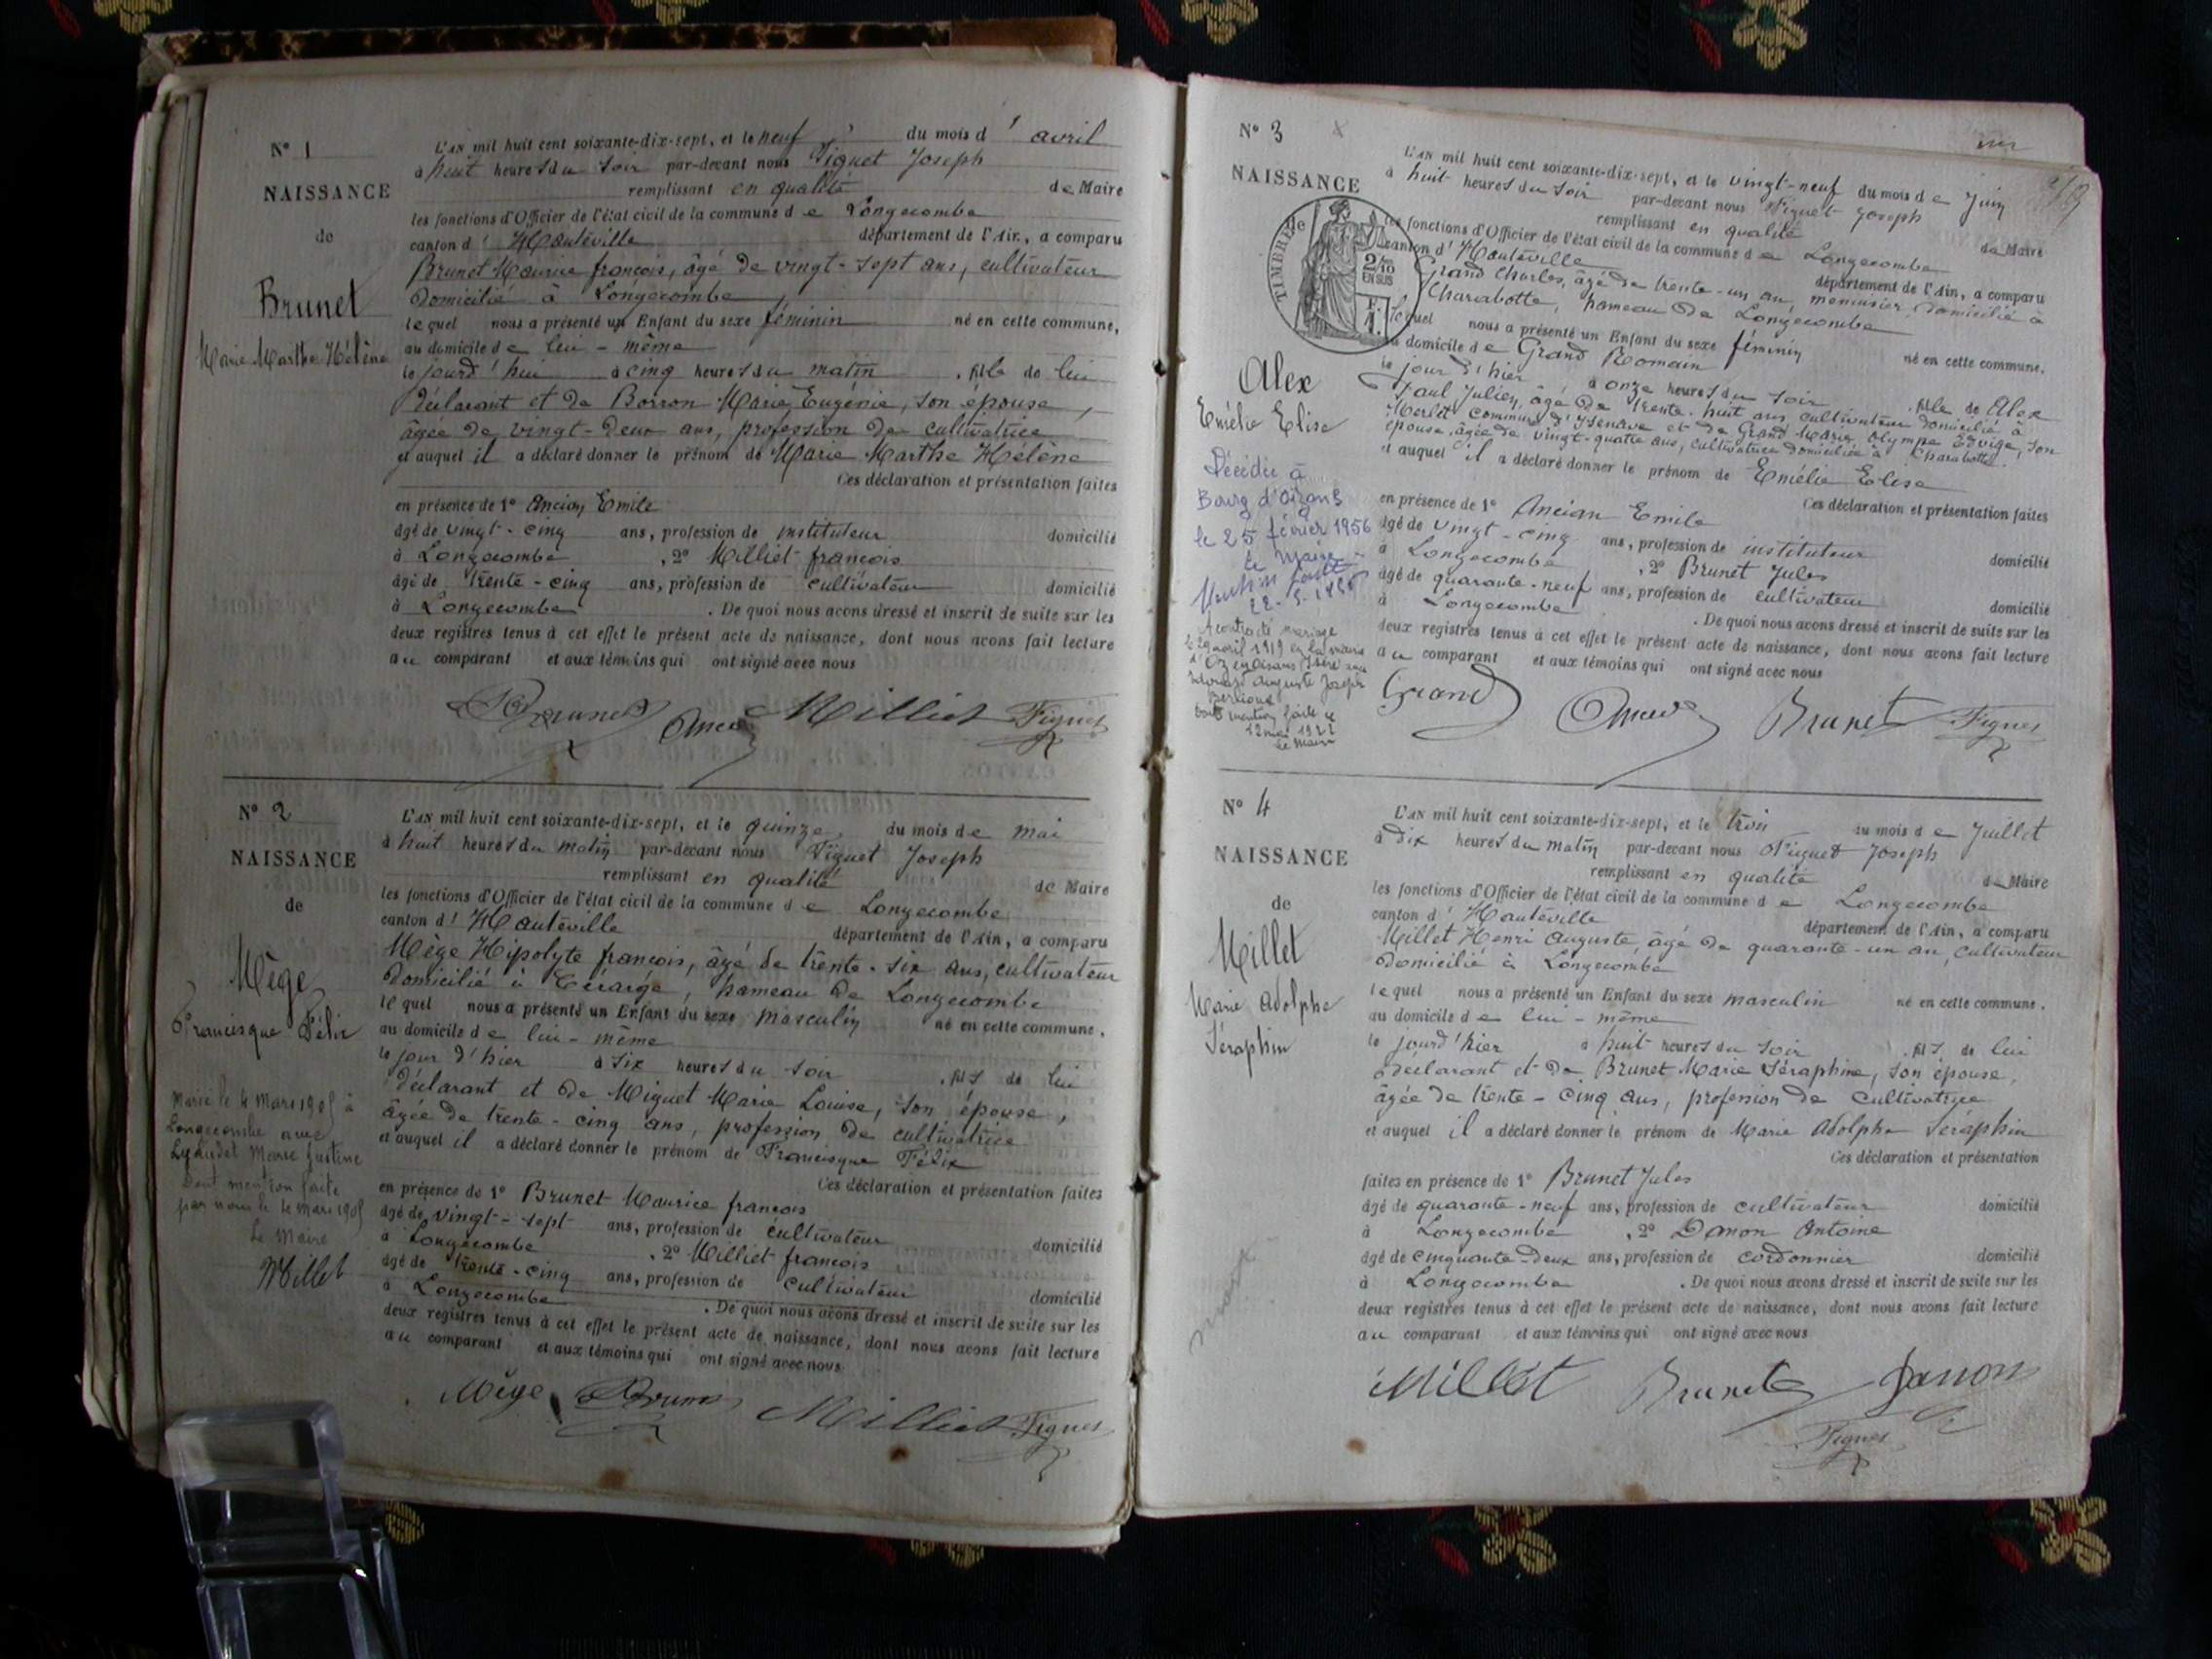 N° 1
NAISSANCE
de
Brunet
Marie Marthe Hélène
L'AN mil huit cent soixante-dix-sept, et le neuf du mois d' avril
à huit heures du soir par-devant nous Figuet Joseph
remplissant en qualité de Maire
les fonctions d'Officier de l'état civil de la commune de Longecombe
canton d' Hauteville département de l'Ain, a comparu
Brunet Maurice françois, âgé de vingt-sept ans, cultivateur
domicilié à Longecombe
lequel nous a présenté un Enfant du sexe féminin né en cette commune,
au domicile de lui-même
le jourd'hui à cinq heures du matin , fille de lui
déclarant et de Borron Marie Eugénie, son épouse,
âgée de vingt-deux ans, profession de cultivatrice
et auquel il a déclaré donner le prénom de Marie Marthe Hélène
Ces déclaration et présentation faites
en présence de 1° Ancian Emile
âgé de vingt-cinq ans, profession de instituteur domicilié
à Longecombe , 2° Milliet françois
âgé de trente-cinq ans, profession de cultivateur domicilié
à Longecombe . De quoi nous avons dressé et inscrit de suite sur les
deux registres tenus à cet effet le présent acte de naissance, dont nous avons fait lecture
au comparant et aux témoins qui ont signé avec nous
Brunet Ancian Milliet Figuet
N° 2
NAISSANCE
de
Mège
Francisque Félix
Marié le 4 Mars 1905 à
Longecombe avec
Marie Justine
Dont mention faite
par nous le 4 Mars 1905
Le Maire
Millet
L'AN mil huit cent soixante-dix-sept, et le quinze, du mois de mai
à huit heures du matin par-devant nous Figuet Joseph
remplissant en qualité de Maire
les fonctions d'Officier de l'état civil de la commune de Longecombe
canton d' Hauteville département de l'Ain, a comparu
Mège Hipolyte françois, âgé de trente-six ans, cultivateur
domicilié à , hameau de Longecombe
lequel nous a présenté un Enfant du sexe masculin né en cette commune,
au domicile de lui-même
le jour d'hier à six heures du soir , fils de lui
déclarant et de Miguet Marie Louise, son épouse,
âgée de trente-cinq ans, profession de cultivatrice
et auquel il a déclaré donner le prénom de Francisque Félix
Ces déclaration et présentation faites
en présence de 1° Brunet Maurice françois
âgé de vingt-sept ans, profession de cultivateur domicilié
à Longecombe , 2° Milliet françois
âgé de trente-cinq ans, profession de cultivateur domicilié
à Longecombe . De quoi nous avons dressé et inscrit de suite sur les
deux registres tenus à cet effet le présent acte de naissance, dont nous avons fait lecture
au comparant et aux témoins qui ont signé avec nous
Mège Brunet Milliet Figuet
N° 3
NAISSANCE
de
TIMBRE
2/10
EN SUS
F.
1.
Alex
Emélie Elise
Décédée à
Bourg d'Oisans
le 25 février 1956
le Maire
A contracté mariage
le 29 avril 1919 en la mairie
d'Oz en Oisans Isère avec
Edouard Auguste Joseph
dont mention faite ce
12 mai 1922
Le Maire
L'AN mil huit cent soixante-dix-sept, et le vingt-neuf du mois de Juin
à huit heures du soir par-devant nous Figuet Joseph
remplissant en qualité de Maire
les fonctions d'Officier de l'état civil de la commune de Longecombe
canton d' Hauteville département de l'Ain, a comparu
Grand Charles, âgé de trente-un an, menuisier, domicilié à
Charabotte, hameau de Longecombe
lequel nous a présenté un Enfant du sexe féminin né en cette commune.
au domicile de Grand Romain
le jour d'hier à onze heures du soir , fille de Alex
Paul Julien, âgé de trente-huit ans, cultivateur domicilié à
Merlot commune d'Izenave et de Grand Marie Olympe Edvige, son
épouse, âgée de vingt-quatre ans, cultivatrice domiciliée à Charabotte.
et auquel il a déclaré donner le prénom de Emélie Elise
Ces déclaration et présentation faites
en présence de 1° Ancian Emile
âgé de vingt-cinq ans, profession de instituteur domicilié
à Longecombe , 2° Brunet Jules
âgé de quarante-neuf ans, profession de cultivateur domicilié
à Longecombe . De quoi nous avons dressé et inscrit de suite sur les
deux registres tenus à cet effet le présent acte de naissance, dont nous avons fait lecture
au comparant et aux témoins qui ont signé avec nous
Grand Ancian Brunet Figuet
N° 4
NAISSANCE
de
Millet
Marie Adolphe
Séraphin
L'AN mil huit cent soixante-dix-sept, et le trois du mois de Juillet
à dix heures du matin par-devant nous Figuet Joseph
remplissant en qualité de Maire
les fonctions d'Officier de l'état civil de la commune de Longecombe
canton d' Hauteville département de l'Ain, a comparu
Millet Henri Auguste âgé de quarante-un an, cultivateur
domicilié à Longecombe
lequel nous a présenté un Enfant du sexe masculin né en cette commune.
au domicile de lui-même
le jourd'hier à huit heures du soir , fils de lui
déclarant et de Brunet Marie Séraphine, son épouse,
âgée de trente-cinq ans, profession de cultivatrice
et auquel il a déclaré donner le prénom de Marie Adolphe Séraphin
Ces déclaration et présentation
faites en présence de 1° Brunet Jules
âgé de quarante-neuf ans, profession de cultivateur domicilié
à Longecombe , 2° Danon Antoine
âgé de cinquante-deux ans, profession de cordonnier domicilié
à Longecombe . De quoi nous avons dressé et inscrit de suite sur les
deux registres tenus à cet effet le présent acte de naissance, dont nous avons fait lecture
au comparant et aux témoins qui ont signé avec nous
Millet Brunet Danon
Figuet